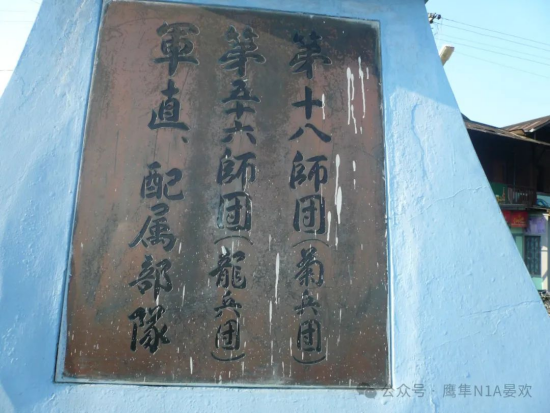 第十八師団(菊兵団)
第五十六師団(龍兵団)
軍直、配属部隊
公众号·鹰隼N1A晏欢